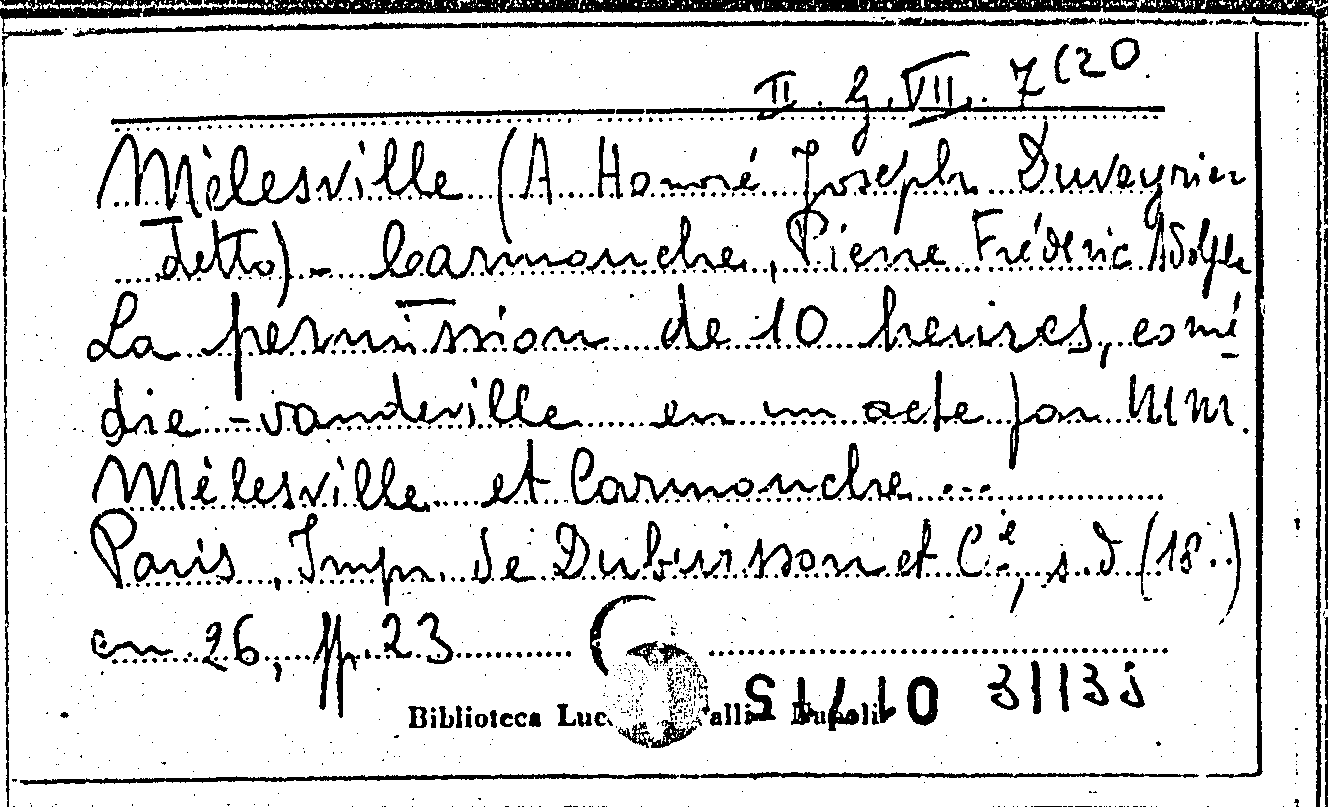 II. G. VII. 7(20
Mèlesville (A Honoré Joseph Duveyrier
detto) - Carmouche, Pierre Frédéric Adolphe
La permission de 10 heures, comé
die-vaudeville en un acte par MM.
Mèlesville et Carmouche ...
Paris, Imp. de Dubuisson et Cie, s.d (18..)
cm 26, pp. 23
Biblioteca Luc